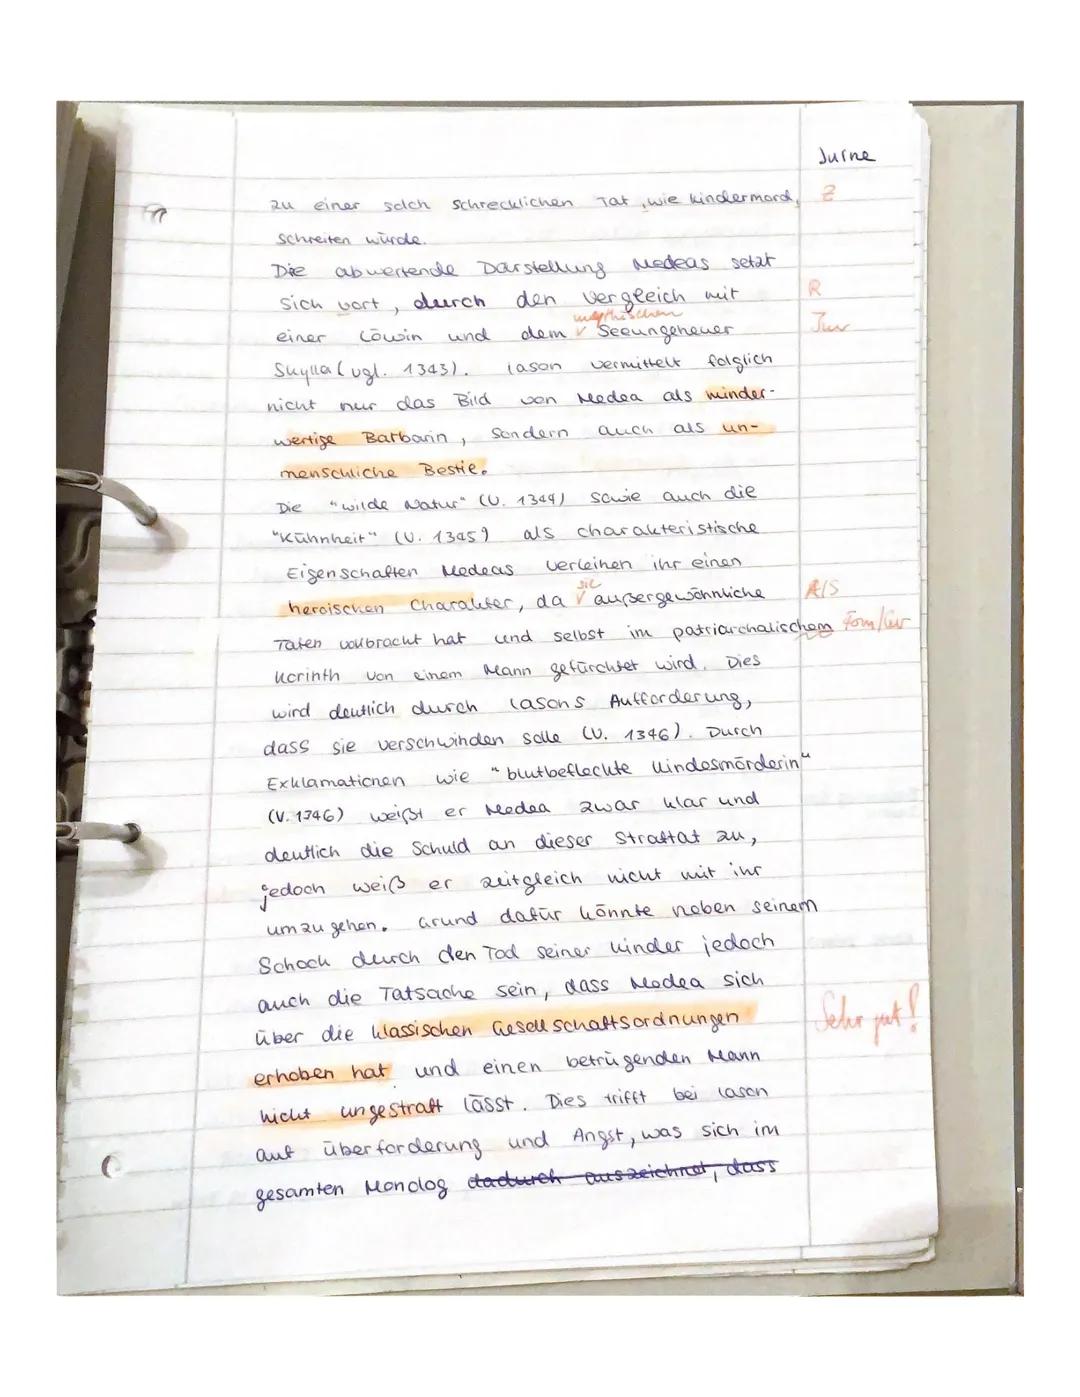 Jurne
zu einer solch schrecklichen Tat, wie Kindermord, Z
schreiten würde.
Die abwertende Darstellung Medeas setzt
sich vort, durch den Vergleich mit R
mythischen
einer Löwin und dem V Seeungeheuer
Skylla (vgl. 1343). Iason vermittelt folglich
nicht nur das Bild von Medea als minder-
wertige Barbarin, sondern auch als un-
menschliche Bestie.
Die "wilde Natur" (V. 1344) sowie auch die
"Kühnheit" (V. 1345) als charakteristische
Eigenschaften Medeas verleihen ihr einen
sie
heroischen Charakter, da V außergewöhnliche A/S
Taten vollbracht hat und selbst im patriarchalischem
Korinth von einem Mann gefürchtet wird. Dies
wird deutlich durch Iasons Aufforderung,
dass sie verschwinden solle (V. 1346). Durch
Exklamationen wie "blutbefleckte Kindesmörderin"
(V. 1346) weißt er Medea zwar klar und
deutlich die Schuld an dieser Straftat zu,
jedoch weiß er zeitgleich nicht mit ihr
umzugehen. Grund dafür könnte neben seinem
Schock durch den Tod seiner Kinder jedoch
auch die Tatsache sein, dass Medea sich
über die klassischen Gesellschaftsordnungen Sehr gut!
erhoben hat und einen betrügenden Mann
nicht ungestraft lässt. Dies trifft bei Iason
auf Überforderung und Angst, was sich im
gesamten Monolog dadurch auszeichnet, dass